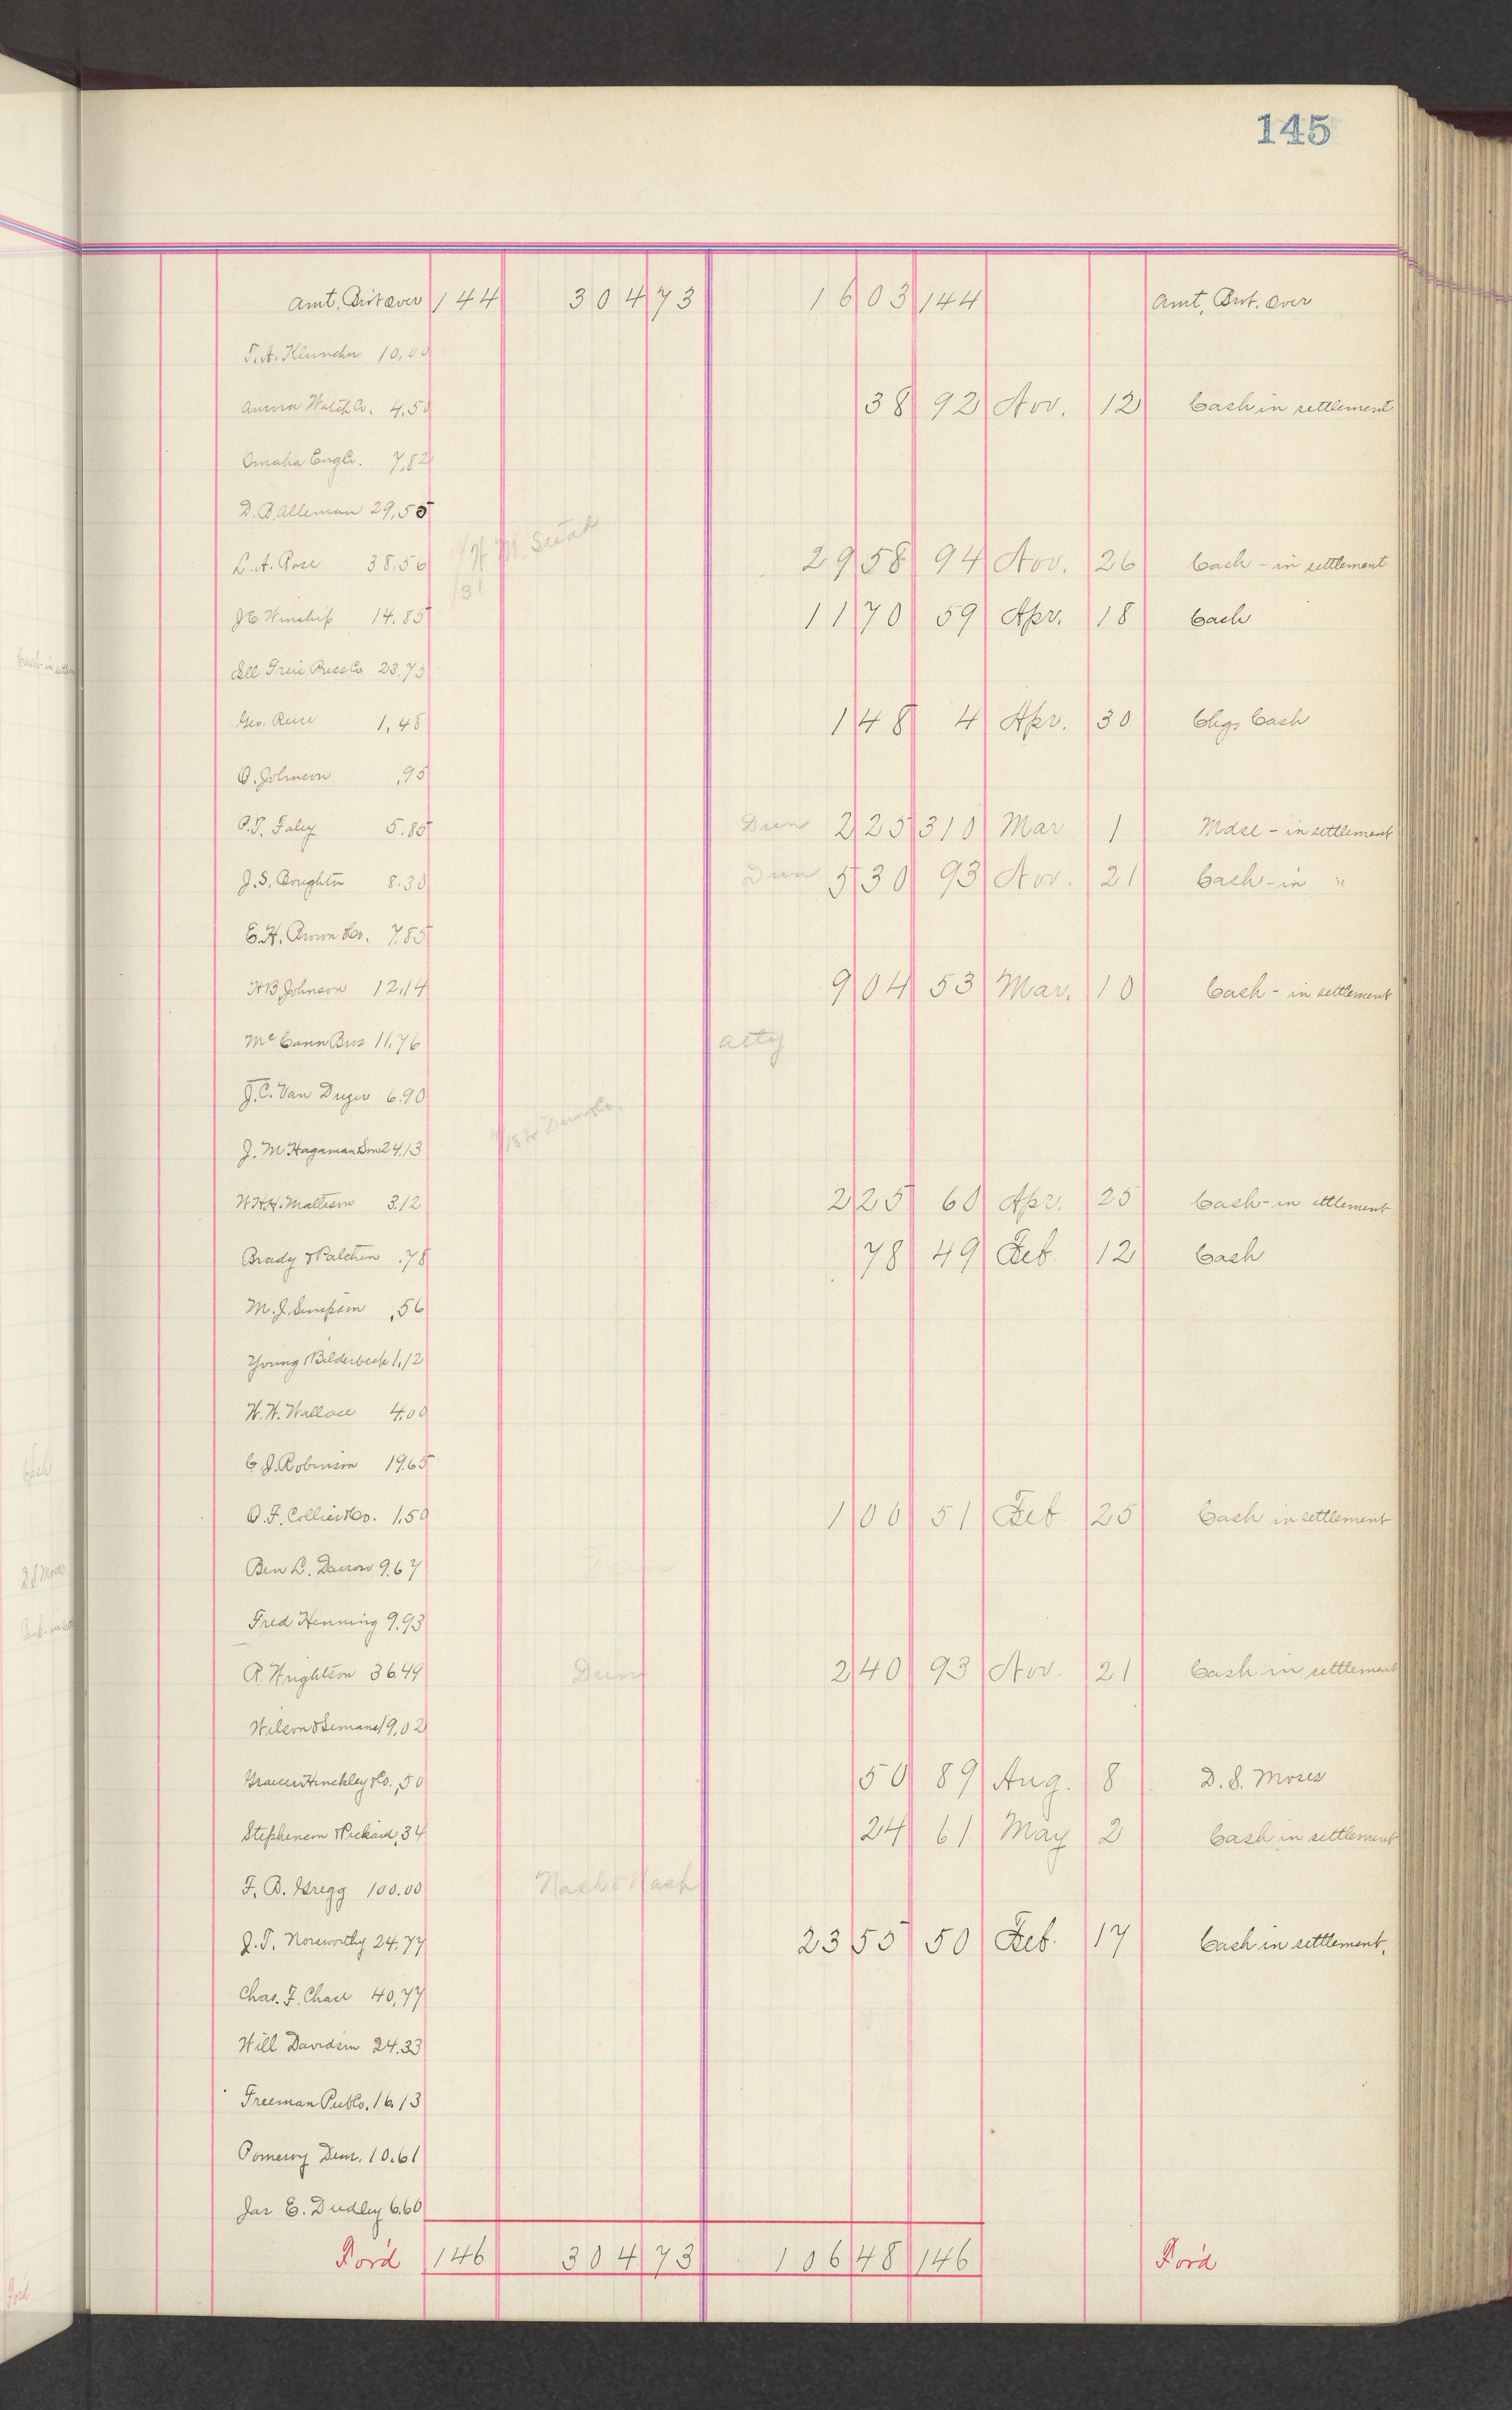 145
Amt. Brt over 144 304 73 16 03 144 Amt. Brt. Over
10.00
Aurora Watch Co. 4.50 38 92 Nov. 12 Cash in settlement
Omaha Eng Co. 7.82
D. B. Alleman 29.55
L. A. Rose 38.56 29 58 94 Nov. 26 Cash - in settlement
31
J E Winship 14.85 11 70 59 Apr. 18 Cash
Press Co 23.73
Geo. 1.48 1 48 4 Apr. 30 Chgo Cash
O. Johnson .95
P. T. Foley 5.85 Dun 2 25 310 Mar 1 Mdse - in settlement
J. S. Boughtn 8.30 Dun 5 30 93 Nov. 21 Cash - in "
E. H. Brown & Co. 7.85
H B Johnson 12.14 9 04 53 Mar. 10 Cash - in settlement
McCann Bros 11.76 atty
J. C. Van Duzer 6.90
J. M Hagaman & Son 24.13
W. H. H. Matteson 3.12 2 25 60 Apr. 25 Cash - in ettlement
Brady & Patchen .78 78 49 Feb. 12 Cash
M. J. Simpson .56
Young & Bilderbeck 1.12
W. W. Wallace 4.00
C. J. Robinson 19.65
O. F. Collier & Co. 1.50 1 00 51 Feb 25 Cash in settlement
Ben L. Darrow 9.67
Fred Henning 9.93
R. Wrightson 36.49 Dun 2 40 93 Nov. 21 Cash in settlement
Wilson & Semans 19.02
Hinckley & Co. .50 50 89 Aug. 8 D. S. Moses
Stephenson & Pickard .34 24 61 May 2 Cash in settlement
F. B. Gregg 100.00 Nash & Nash
J. T. Norsworthy 24.77 23 55 50 Feb. 17 Cash in settlement.
Chas. F. Chase 40.77
Will Davidson 24.33
Freeman Pub Co. 16.13
Pomeroy Dem. 10.61
Jas E. Dudley 6.60
For'd 146 304 73 106 48 146 For'd